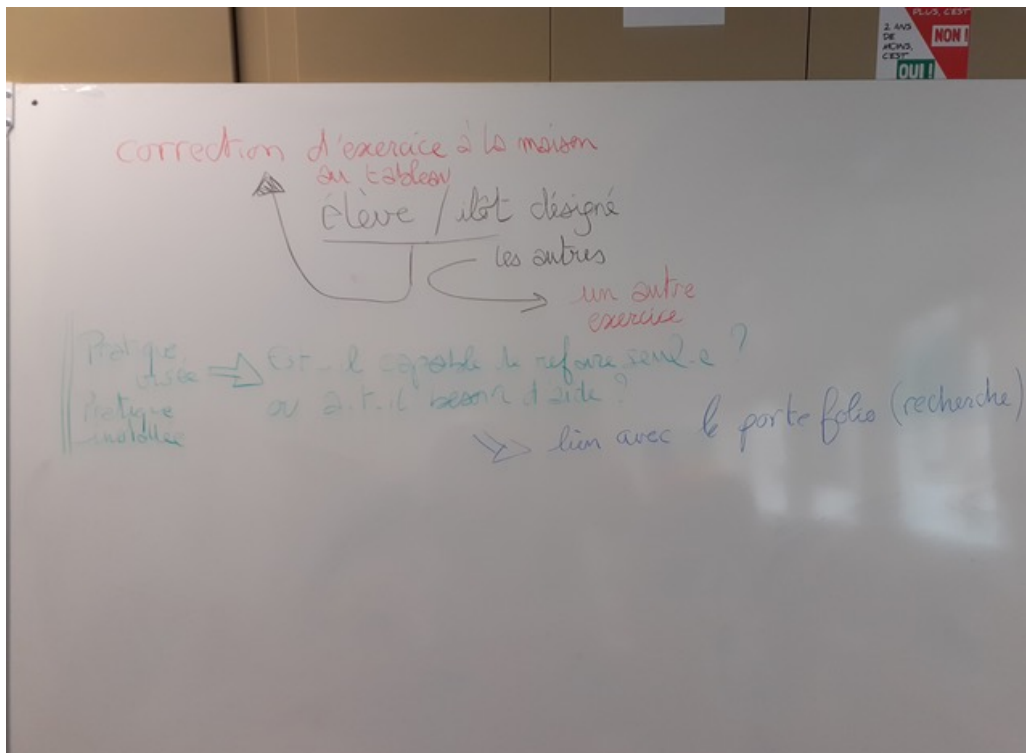 PLUS, C'EST
NON !
2 ANS
DE
MOINS,
C'EST
OUI !
correction d'exercice à la maison
au tableau
élève / ilôt désigné
les autres
un autre
exercice
Pratique
visée
Pratique
installée
Est-il capable de refaire seul-e ?
ou a-t-il besoin d'aide ?
lien avec le porte folio (recherche)